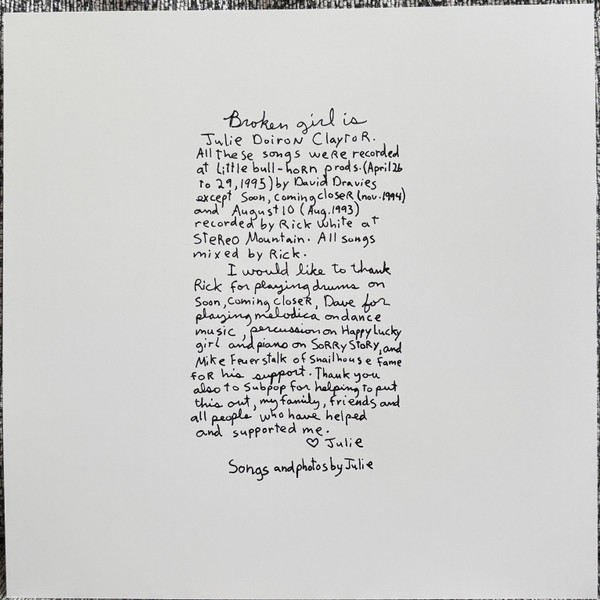 Broken girl is
Julie Doiron Claytor.
All these songs were recorded
at little bull-horn prods. (April 26
to 29, 1995) by David Draves
except Soon, coming closer (nov. 1994)
and August 10 (Aug. 1993)
recorded by Rick White at
Stereo Mountain. All songs
mixed by Rick.
I would like to thank
Rick for playing drums on
Soon, Coming closer, Dave for
playing melodica on dance
music, percussion on Happy Lucky
girl and piano on SoRRy StoRy, and
Mike Feuerstalk of Snailhouse fame
foR his support. Thank you
also to Subpop for helping to put
this out, my family, friends and
all people who have helped
and supported me.
♡ Julie
Songs and photos by Julie